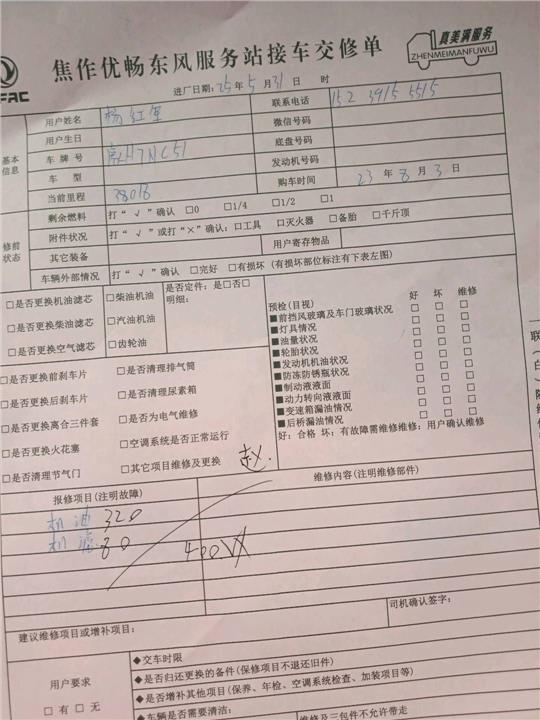 焦作优畅东风服务站接车交修单
真美满服务
ZHENMEIMANFUWU
进厂日期: 25 年 5 月 31 日 时
基本信息
用户姓名 杨红军 联系电话 152 3915 5515
用户生日 微信号码
车牌号 底盘号码
车 型 发动机号码
当前里程 38018 购车时间 23 年 8 月 3 日
修前状态
剩余燃料 打“√”确认 □0 □1/4 □1/2 □1
附件状况 打“√”或打“×”确认: □工具 □灭火器 □备胎 □千斤顶
其它装备 用户寄存物品
车辆外部情况 打“√”确认 □完好 □有损坏 (有损坏部位标注有下表左图)
□是否更换机油滤芯 □柴油机油 是否定件: 是□否□ 明细:
□是否更换柴油滤芯 □汽油机油
□是否更换空气滤芯 □齿轮油
预检(目视) 好 坏 维修
■前挡风玻璃及车门玻璃状况 □ □ □
■灯具情况 □ □ □
■油量状况 □ □ □
■轮胎状况 □ □ □
■发动机机油状况 □ □ □
■防冻防锈瓶状况 □ □ □
■制动液液面 □ □ □
■动力转向液液面 □ □ □
■变速箱漏油情况 □ □ □
■后桥漏油情况 □ □ □
好: 合格 坏: 有故障需维修维修: 用户确认维修
□是否更换前刹车片 □是否清理排气筒
□是否更换后刹车片 □是否清理尿素箱
□是否更换离合三件套 □是否为电气维修
□是否更换火花塞 □空调系统是否正常运行
□是否清理节气门 □其它项目维修及更换 赵.
报修项目(注明故障) 维修内容(注明维修部件)
机油 320
机滤 80 400
建议维修项目或增补项目: 司机确认签字:
用户要求
□ 有 □ 无
◆交车时限
◆是否归还更换的备件(保修项目不退还旧件)
◆是否增补其他项目(保养、年检、空调系统检查、加装项目等)
◆车辆是否需要清洁:
维修及三包件不允许带走